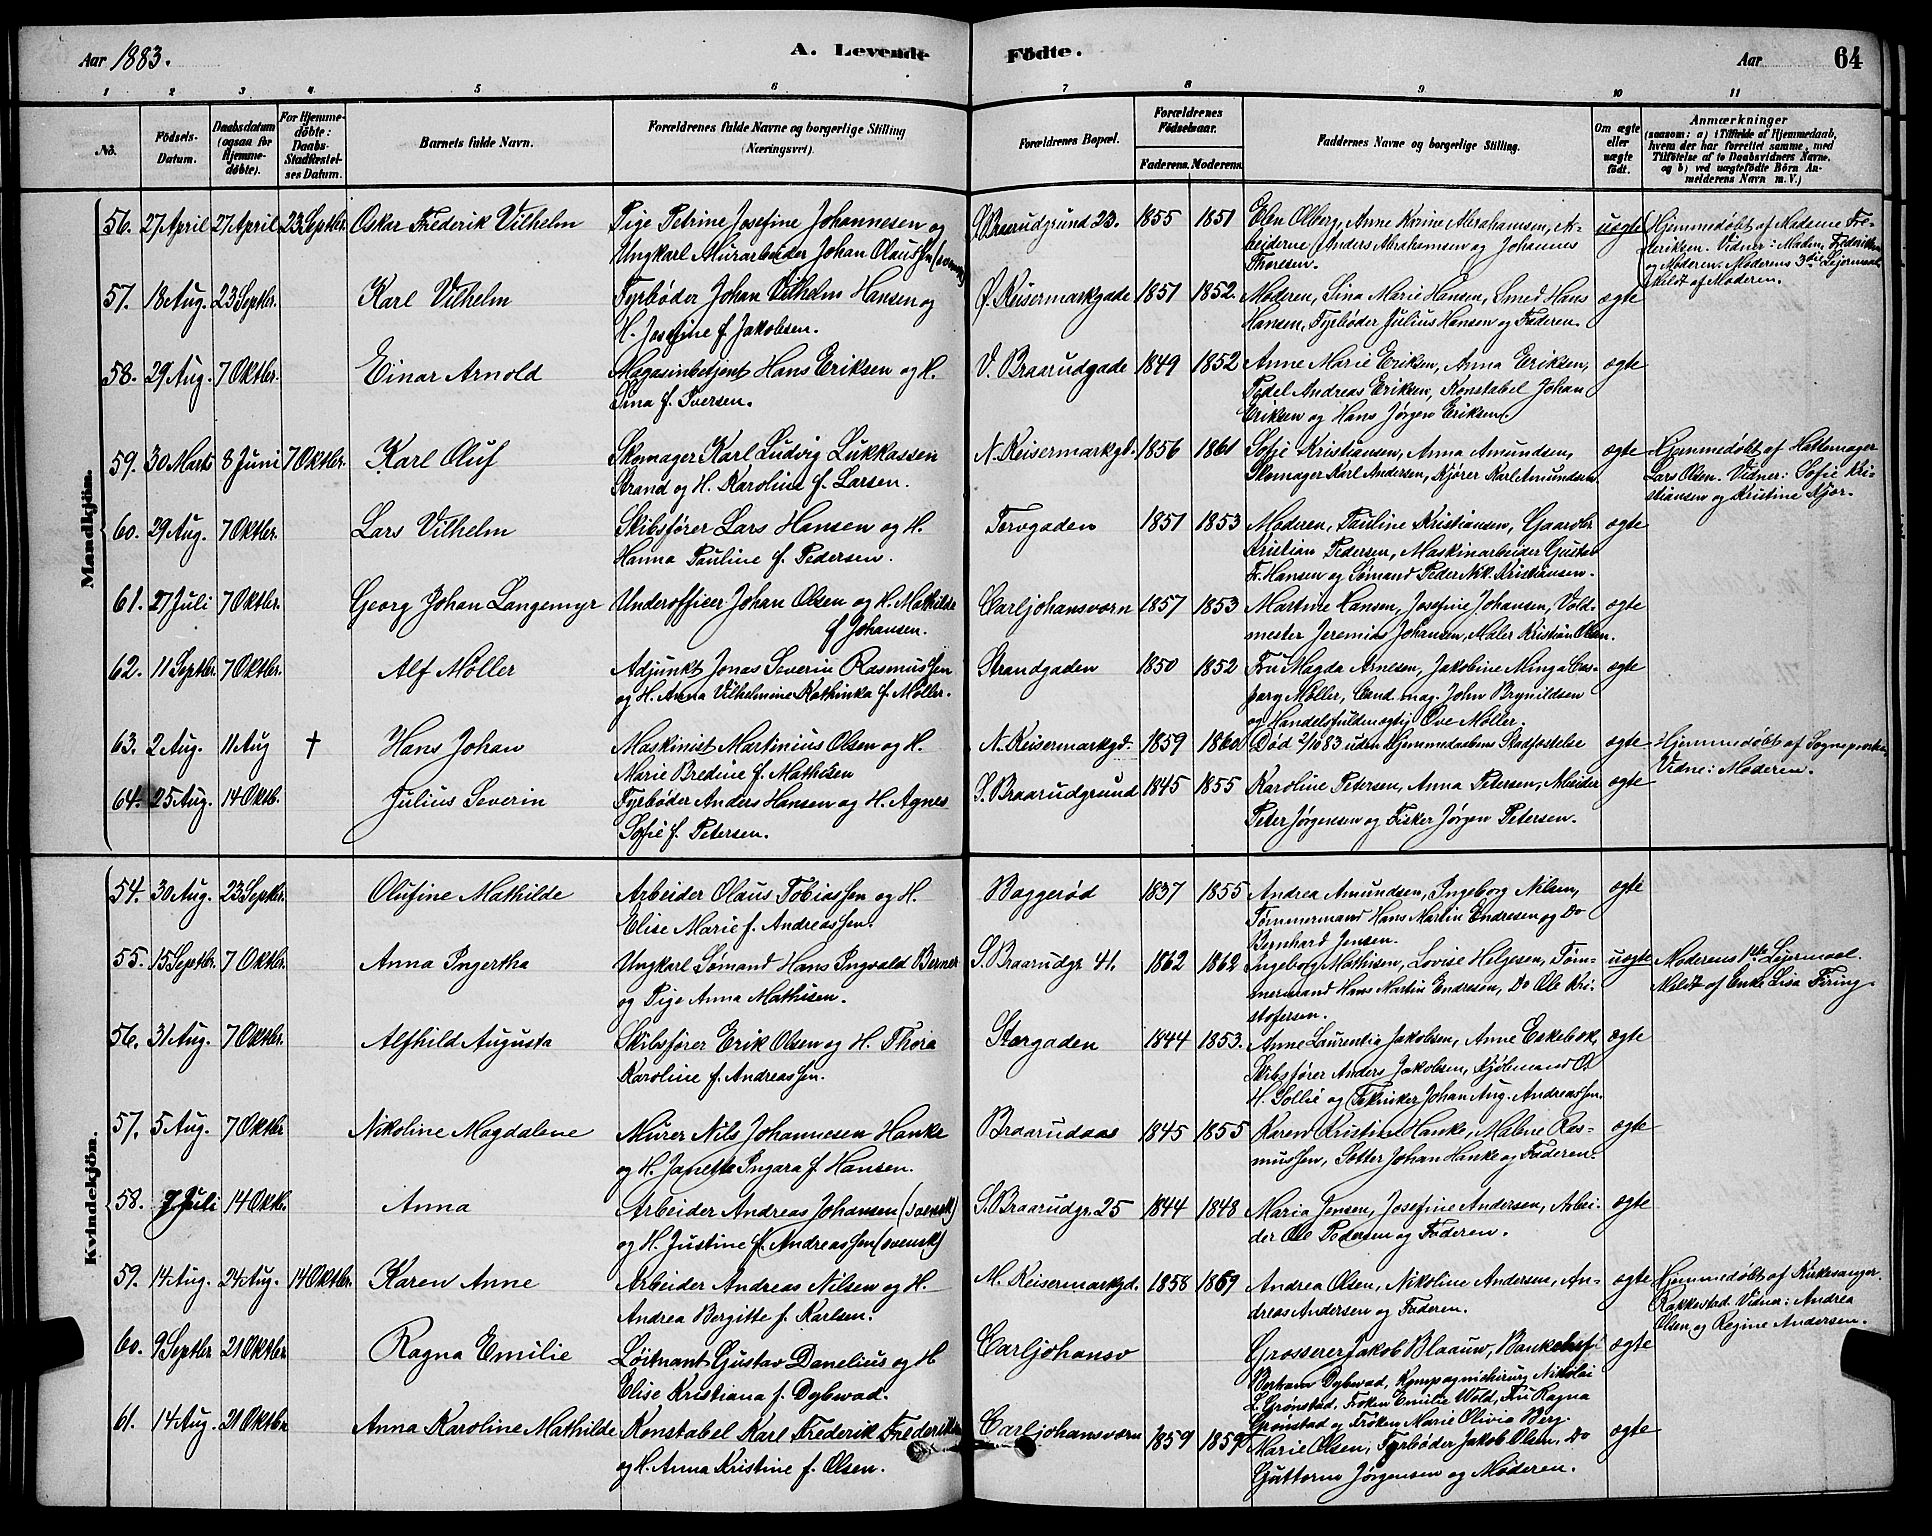 Aar 1883.
A. Levende
Födte.
Aar
64
1 2 3 4 5 6 7 8 9 10 11
No.
Födsels-
Datum.
Daabsdatum
(ogsaa for
Hjemme-
döbte).
For Hjemme-
döbte:
Daabs-
Stadfæstel-
ses Datum.
Barnets fulde Navn.
Forældrenes fulde Navne og borgerlige Stilling
(Næringsvei).
Forældrenes Bopæl.
Forældrenes
Födselsaar.
Faderens. Moderens.
Faddernes Navne og borgerlige Stilling.
Om ægte
eller
uægte
födt.
Anmærkninger
(saasom: a) i Tilfælde af Hjemmedaab,
hvem der har forrettet samme, med
Tilföielse af to Daabsvidners Navne,
og b) ved uægtefödte Börn An-
melderens Navn m. V.)
Mandkjön.
56. 27 April 27 April 23 Septbr. Oskar Frederik Vilhelm
Pige Petrine Josefine Johannesen og
Ungkarl Murarbeider Johan Olaussen
Braarudgrund 23. 1855 1851
Elen Olberg, Anne Karine Abrahamsen, Ar-
beiderne Anders Abrahamsen og Johannes
Thoresen.
uægte
Hjemmedøbt af Madame Fre-
deriksen. Vidner: Madm. Frederiksen
og Moderen. Moderens 3die Leiermaal.
Meldt af Moderen.
57. 18 Aug. 23 Septbr. Karl Vilhelm
Fyrbøder Johan Vilhelm Hansen og
H. Josefine f. Jakobsen.
Ø. Keisermarkgade 1851 1852.
Moderen, Lina Marie Hansen, Smed Hans
Hansen, Fyrbøder Julius Hansen og Faderen.
ægte
58. 29 Aug. 7 Oktbr. Einar Arnold
Magasinbetjent Hans Eriksen og H.
Lina f. Iversen.
V. Braarudgade 1849 1852
Anne Marie Eriksen, Anna Eriksen,
Pedel Andreas Eriksen, Konstabel Johan
Eriksen og Hans Jørgen Eriksen.
ægte
59. 30 Marts 8 Juni 7 Oktbr. Karl Oluf
Skomager Karl Ludvig Lukkassen
Strand og H. Karoline f. Larsen.
N. Keisermarkgd. 1856 1861
Sofie Kristiansen, Anna Amundsen,
Skomager Karl Andersen, Kjører Karl Amundsen
ægte
Hjemmedøbt af Hattemager
Lars Olsen. Vidner: Sofie Kri-
stiansen og Kristine Kjør.
60. 29 Aug. 7 Oktbr. Lars Vilhelm
Skibsfører Lars Hansen og H.
Hanna Pauline f. Pedersen.
Torvgaden 1851 1853
Moderen, Pauline Kristiansen, Gaardbr
Kristian Pedersen, Maskinarbeider Gustav
Fr. Hansen og Sømand Peder Nik. Kristiansen.
ægte
61. 27 Juli 7 Oktbr. Georg Johan Langemyr
Underofficer Johan Olsen og H. Mathilde
f Johansen.
Carljohansværn 1857 1853
Martine Hansen, Josefine Johansen, Vold-
mester Jeremias Johansen, Maler Kristian Olsen.
ægte
62. 11 Septbr. 7 Oktbr. Alf Møller
Adjunkt Jonas Severin Rasmussen
og H. Anna Vilhelmine Kathinka f. Møller.
Strandgaden 1850 1852
Fru Magda Arnesen, Jakobine Minga Cas-
parg Møller, Cand. mag. John Brynildsen
og Handelsfuldmægtig Ove Møller.
ægte
63. 2 Aug. 11 Aug † Hans Johan
Maskinist Martinius Olsen og H.
Marie Bredine f. Mathisen
N. Keisermarkgd. 1859 1860
Død 2/10 83 uden Hjemmedaabens Stadfæstelse
ægte
Hjemmedøbt af Sognepresten
Vidne: Moderen.
64. 25 Aug. 14 Oktb. Julius Severin
Fyrbøder Anders Hansen og H. Agnes
Sofie f. Petersen.
S. Braarudgrund 1845 1855
Karoline Petersen, Anna Petersen, Arbeider
Peter Jørgensen og Fisker Jørgen Petersen.
ægte
Kvindekjön.
54. 30 Aug. 23 Septbr. Olufine Mathilde
Arbeider Olaus Tobiassen og H.
Elise Marie f. Andreassen.
Baggerød 1837 1855
Andrea Amundsen, Ingeborg Nilsen,
Tømmermand Hans Martin Endresen og Do
Bernhard Jensen.
ægte
55. 15 Septbr. 7 Oktbr. Anna Ingertha
Ungkarl Sømand Hans Ingvald Berner
og Pige Anna Mathisen.
S. Braarudgr. 41. 1862 1862
Ingeborg Mathisen, Lovise Helgesen, Tøm-
mermand Hans Martin Endresen, Do Ole Kri-
stofersen.
uægte
Moderens 1ste Leiermaal.
Meldt af Enke Lisa Firing.
56. 31 Aug. 7 Oktbr. Alfhild Augusta
Skibsfører Erik Olsen og H. Thora
Karoline f. Andreassen.
Storgaden 1844 1853.
Anne Laurentia Jakobsen, Anne Eskebæk,
Skibsfører Anders Jakobsen, Kjøbmand O.
H. Sollie og Tekniker Johan Aug. Andreassen.
ægte
57. 5 Aug. 7 Oktbr Nikoline Magdalene
Murer Nils Johannesen Hanke
og H. Janette Ingara f. Hansen.
Braarudaas 1845 1855
Karen Kristine Hanke, Malene Ras-
mussen, Lotter Johan Hanke og Faderen.
ægte
58. 7 Juli 14 Oktb. Anna
Arbeider Andreas Johansen (svensk)
og H. Justine f. Andreassen (svensk)
S. Braarudgr. 25 1844 1848
Maria Jensen, Josefine Andersen, Arbei-
der Ole Pedersen og Faderen.
ægte
59. 14 Aug. 24 Aug. 14 Oktbr. Karen Anne
Arbeider Andreas Nilsen og H.
Andrea Bergitte f. Karlsen.
M. Keisermarkgd. 1858 1859
Andrea Olsen, Nikoline Andersen, An-
dreas Andersen og Faderen.
ægte
Hjemmedøbt af Kirkesanger
Rakkestad. Vidner: Andrea
Olsen og Regine Andersen.
60. 9 Septbr 21 Oktbr Ragna Emilie
Løitnant Gustav Danelius og H
Elise Kristiana f. Dybwad.
Carljohansv
Grosserer Jakob Blaauw, Bankchef
Bertram Dybwad, Kompagnichirurg Nikolai
L. Grønstad, Frøken Emilie Wold, Fru Ragna
Grønstad og Frøken Marie Olivia Berg.
ægte
61. 14 Aug. 21 Oktbr Anna Karoline Mathilde
Konstabel Karl Frederik Frederiksen
og H. Anna Kristine f. Olsen.
Carljohansværn 1859 1859
Marie Olsen, Fyrbøder Jakob Olsen, Do
Guttorm Jørgensen og Moderen.
ægte